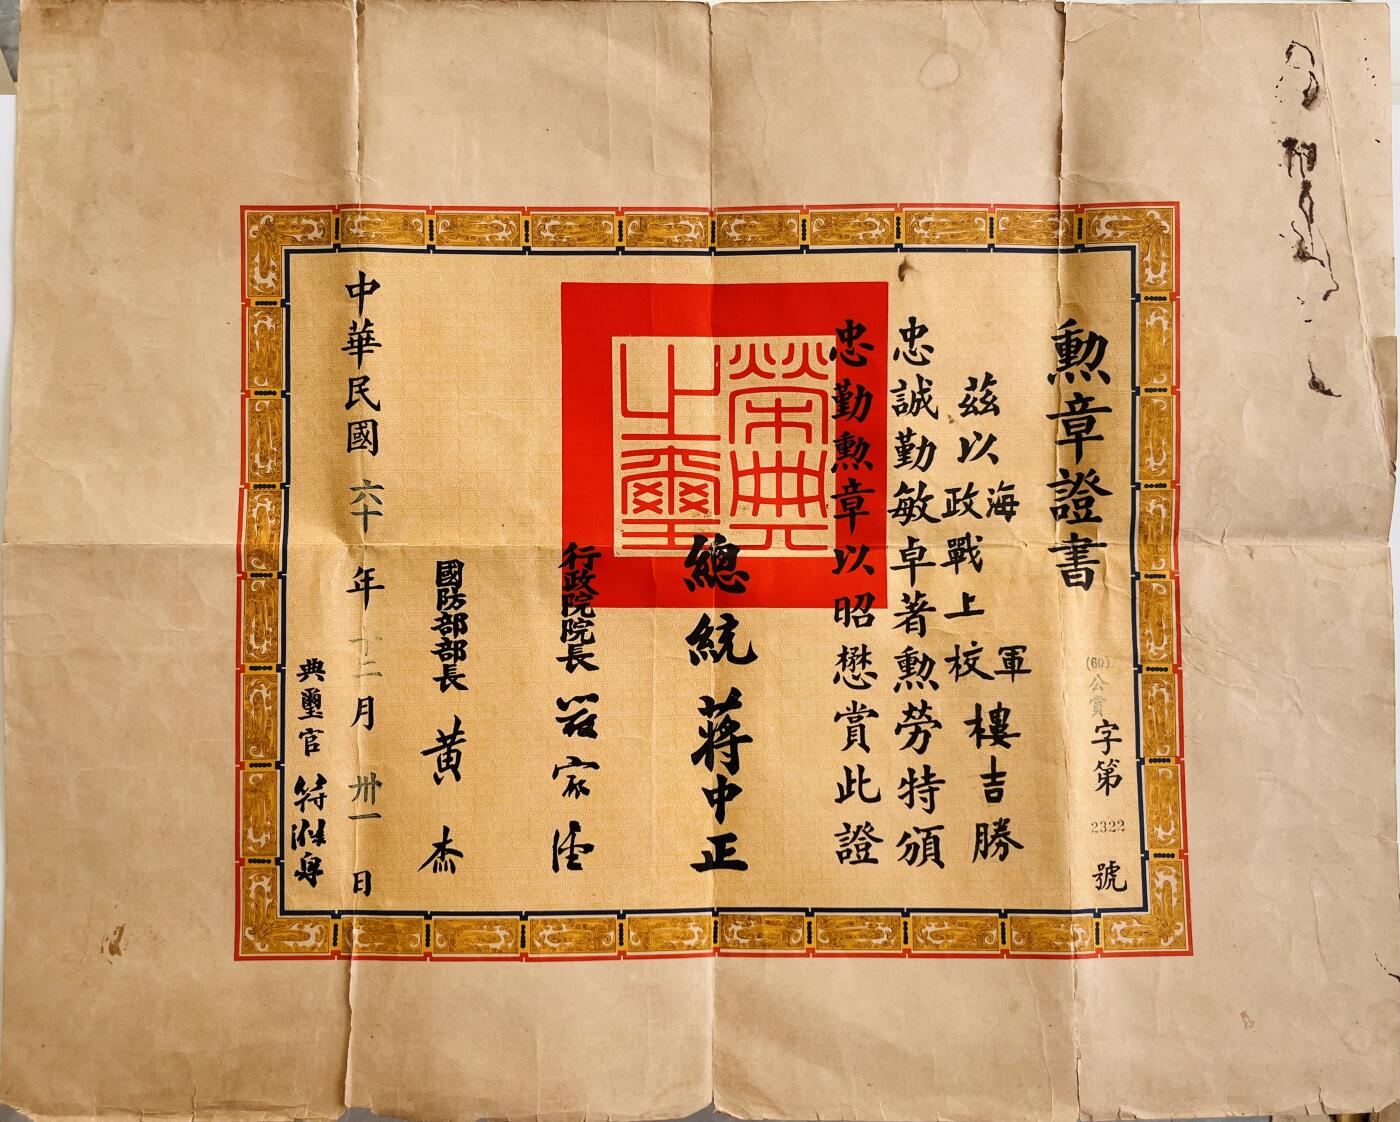 勳章證書
(60)公賞字第2322號
茲以海軍政戰上校樓吉勝
忠誠勤敏卓著勳勞特頒
忠勤勳章以昭懋賞此證
榮典之璽
總統 蔣中正
行政院院長 嚴家淦
國防部部長 黃杰
中華民國六十年十二月卅一日
典璽官 符